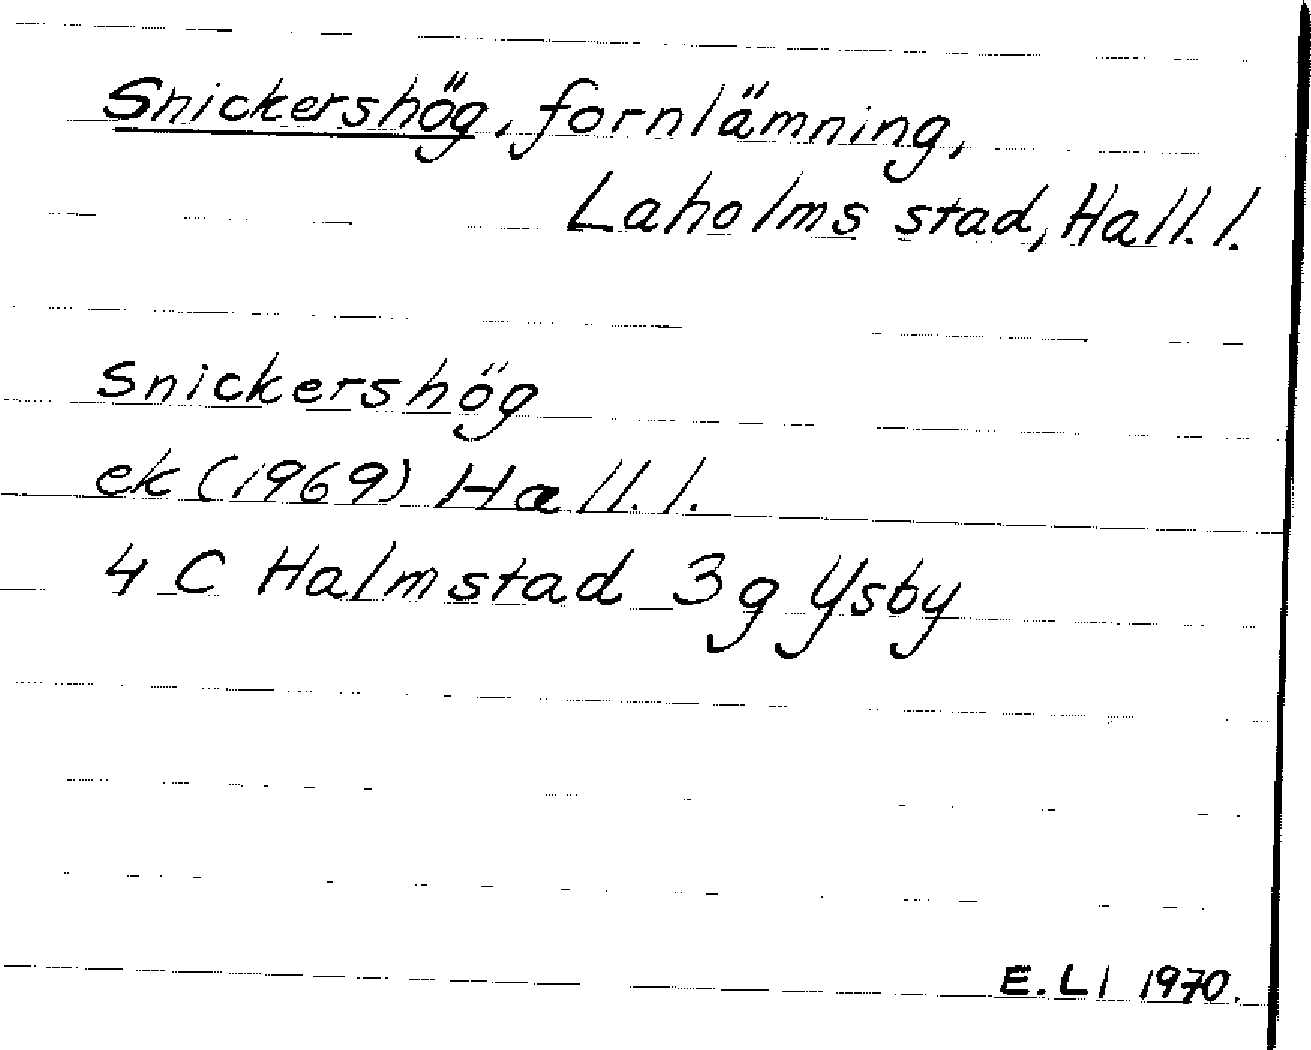 Snickershög, fornlämning,
Laholms stad, Hall. l.
Snickershög
ek (1969) Hall. l.
4 C Halmstad 3 g Ysby
E. Ll 1970.